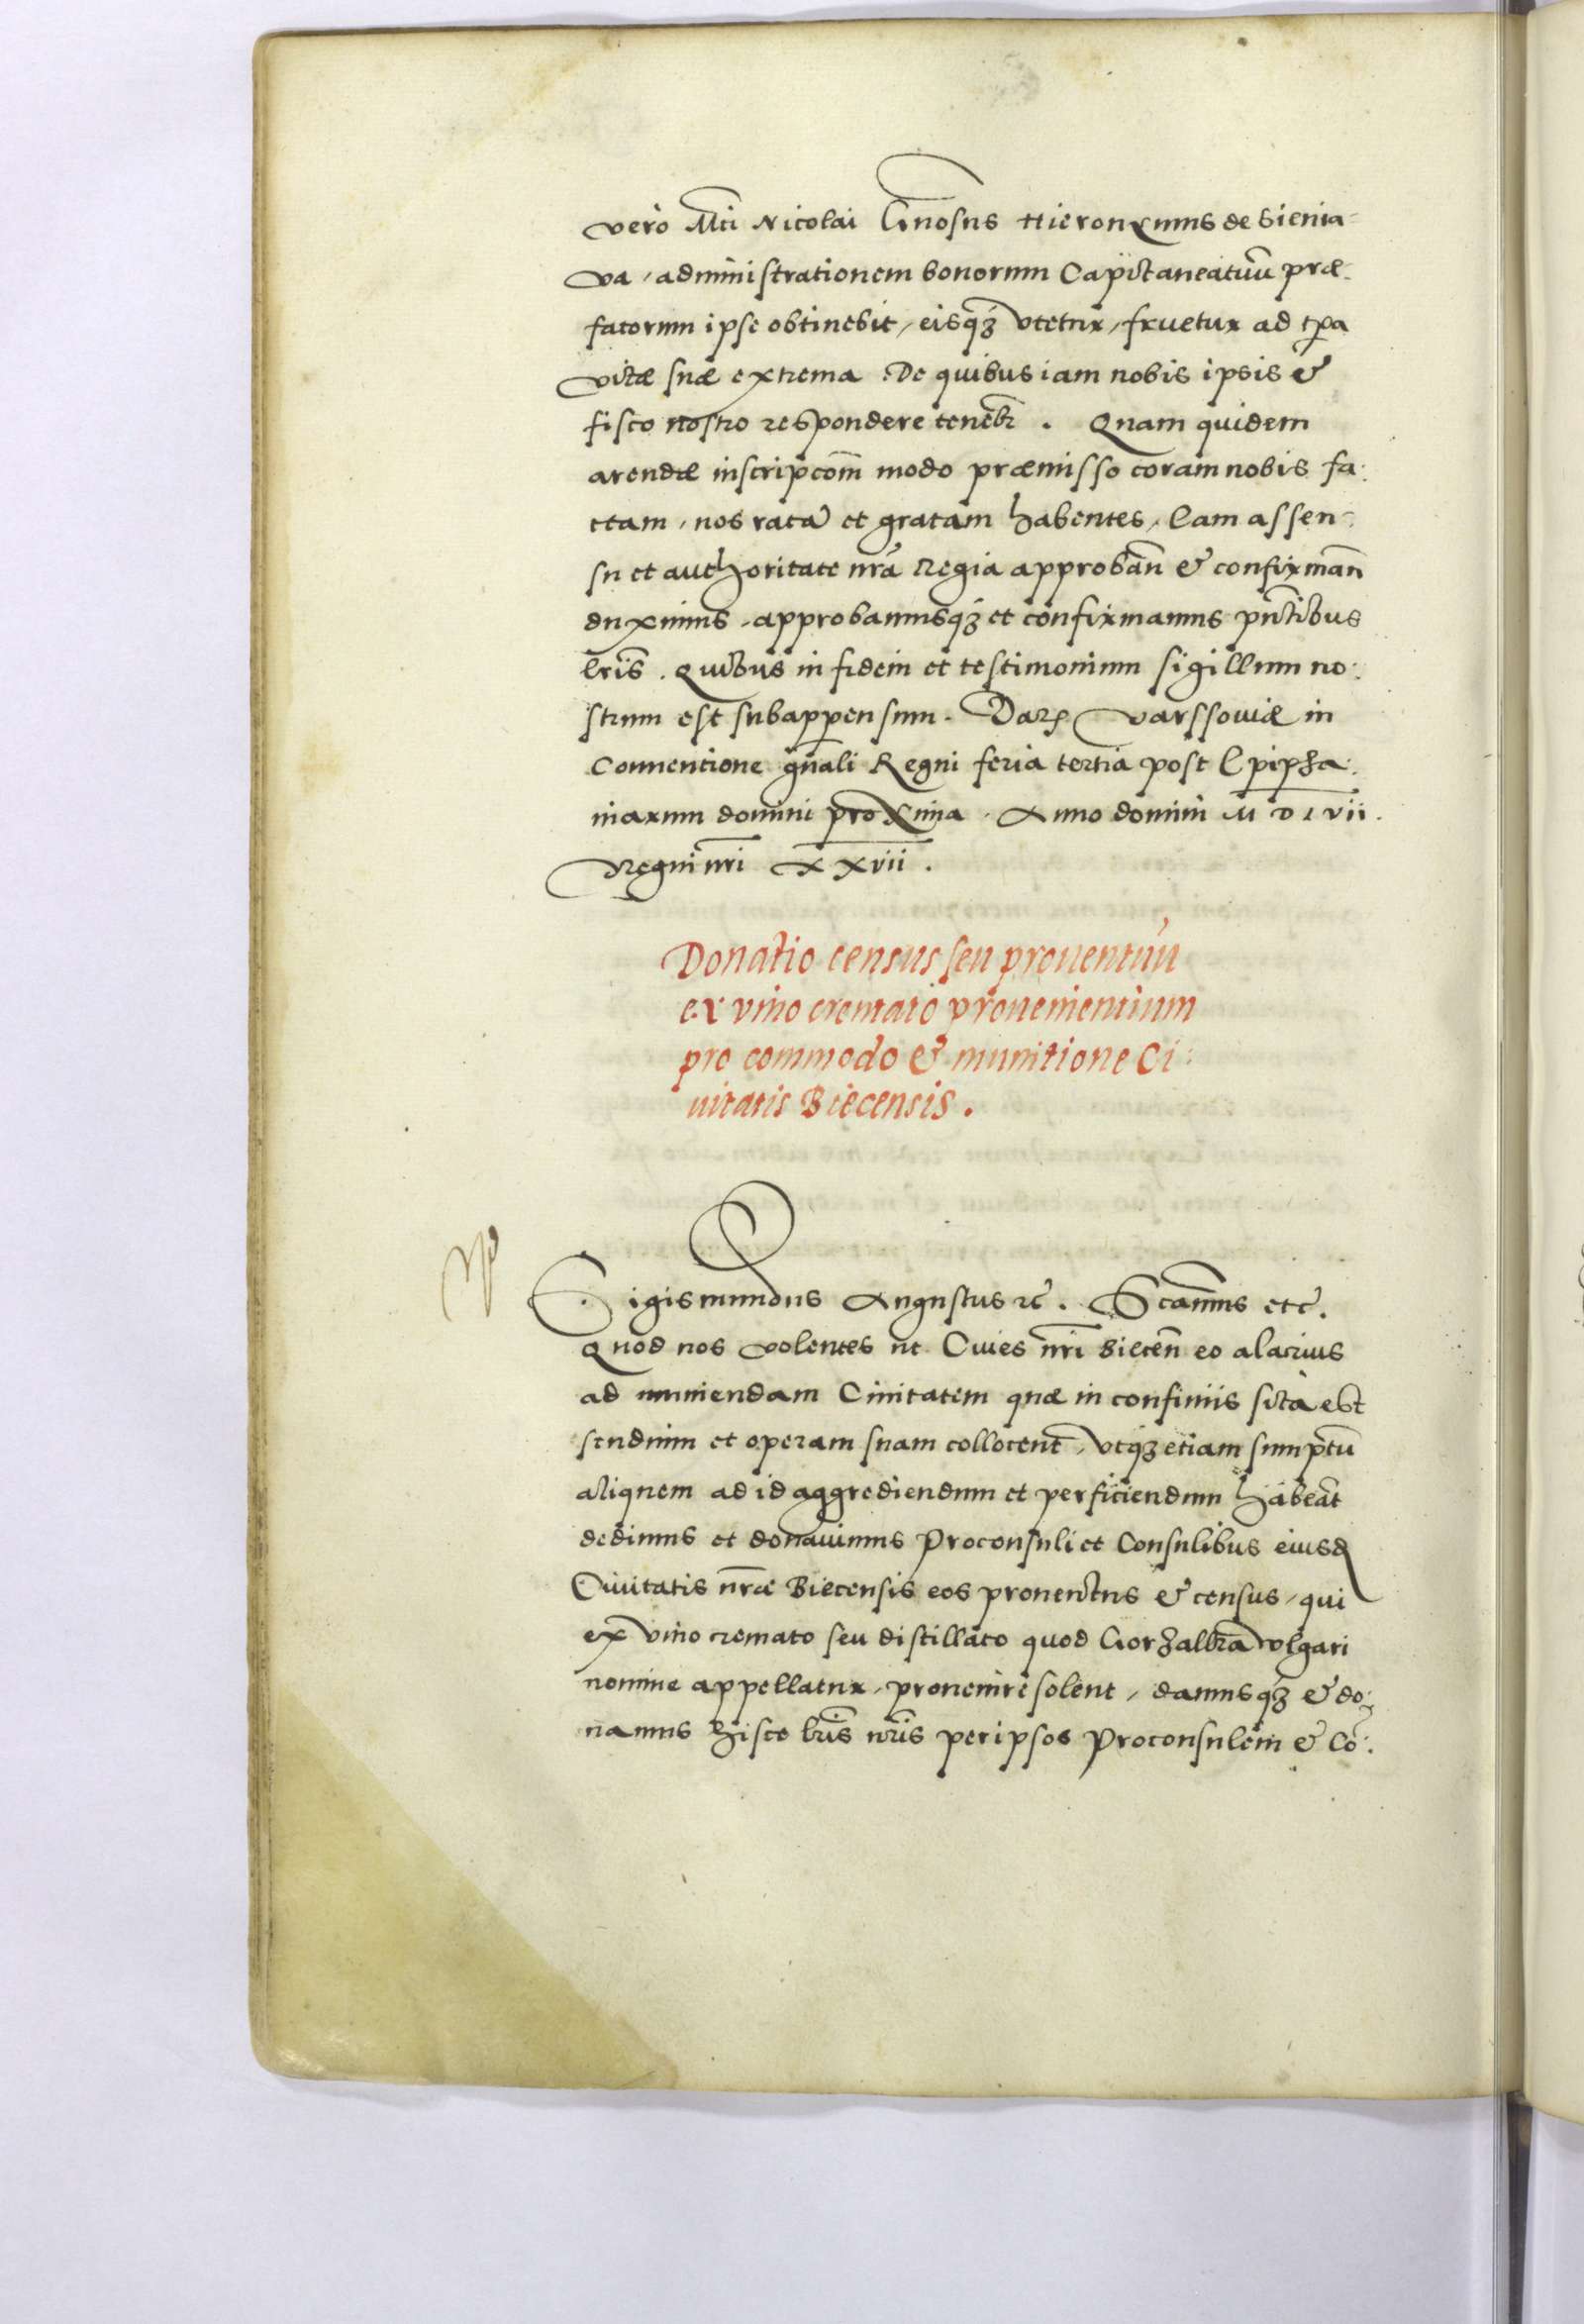 vero Mci Nicolai Gnosus Hieronymus de Sienia-
va, administrationem bonorum Capitaneatuũ præ-
fatorum ipse obtinebit, eisqȝ vtetur, fruetur ad tꝑa
vitæ suæ extrema. De quibus iam nobis ipsis &
fisco nostro respondere tenebr̃. Quam quidem
arendæ inscripcom̃ modo præmisso coram nobis fa:
ctam, nos ratã et gratam habentes, Eam assen-
su et authoritate nr̃a Regia approbañ & confirmañ
duximus, approbamusqȝ et confirmamus pñtibus
lr̃is. Quibus in fidem et testimonium sigillum no:
strum est subappensum. Datꝝ Varssouiæ in
Conuentione gñali Regni feria tertia post Epipha:
niarum domini proxima. Anno domini M D L vii.
Regni nr̃i xxvii.
Donatio census seu prouentuũ
ex vino cremato prouenientium
pro commodo & munitione Ci:
uitatis Biecensis.
Sigismundus Augustus ꝛc̃. Sc̃amus etc̃.
Quod nos volentes ut Ciues nr̃i Biecen̄ eo alacrius
ad muniendam Ciuitatem quæ in confiniis sita est
studium et operam suam collocent, vtqȝ etiam sumptũ
aliquem ad id aggrediendum et perficiendum habeãt
dedimus et donauimus Proconsuli et Consulibus eiusd
Ciuitatis nr̃æ Biecensis eos prouentus & census, qui
ex vino cremato seu distillato quod Gorzalka vlgari
nomine appellatur, prouenire solent, damusqȝ & do:
namus hisce lr̃is nr̃is per ipsos Proconsulem & Cõ: